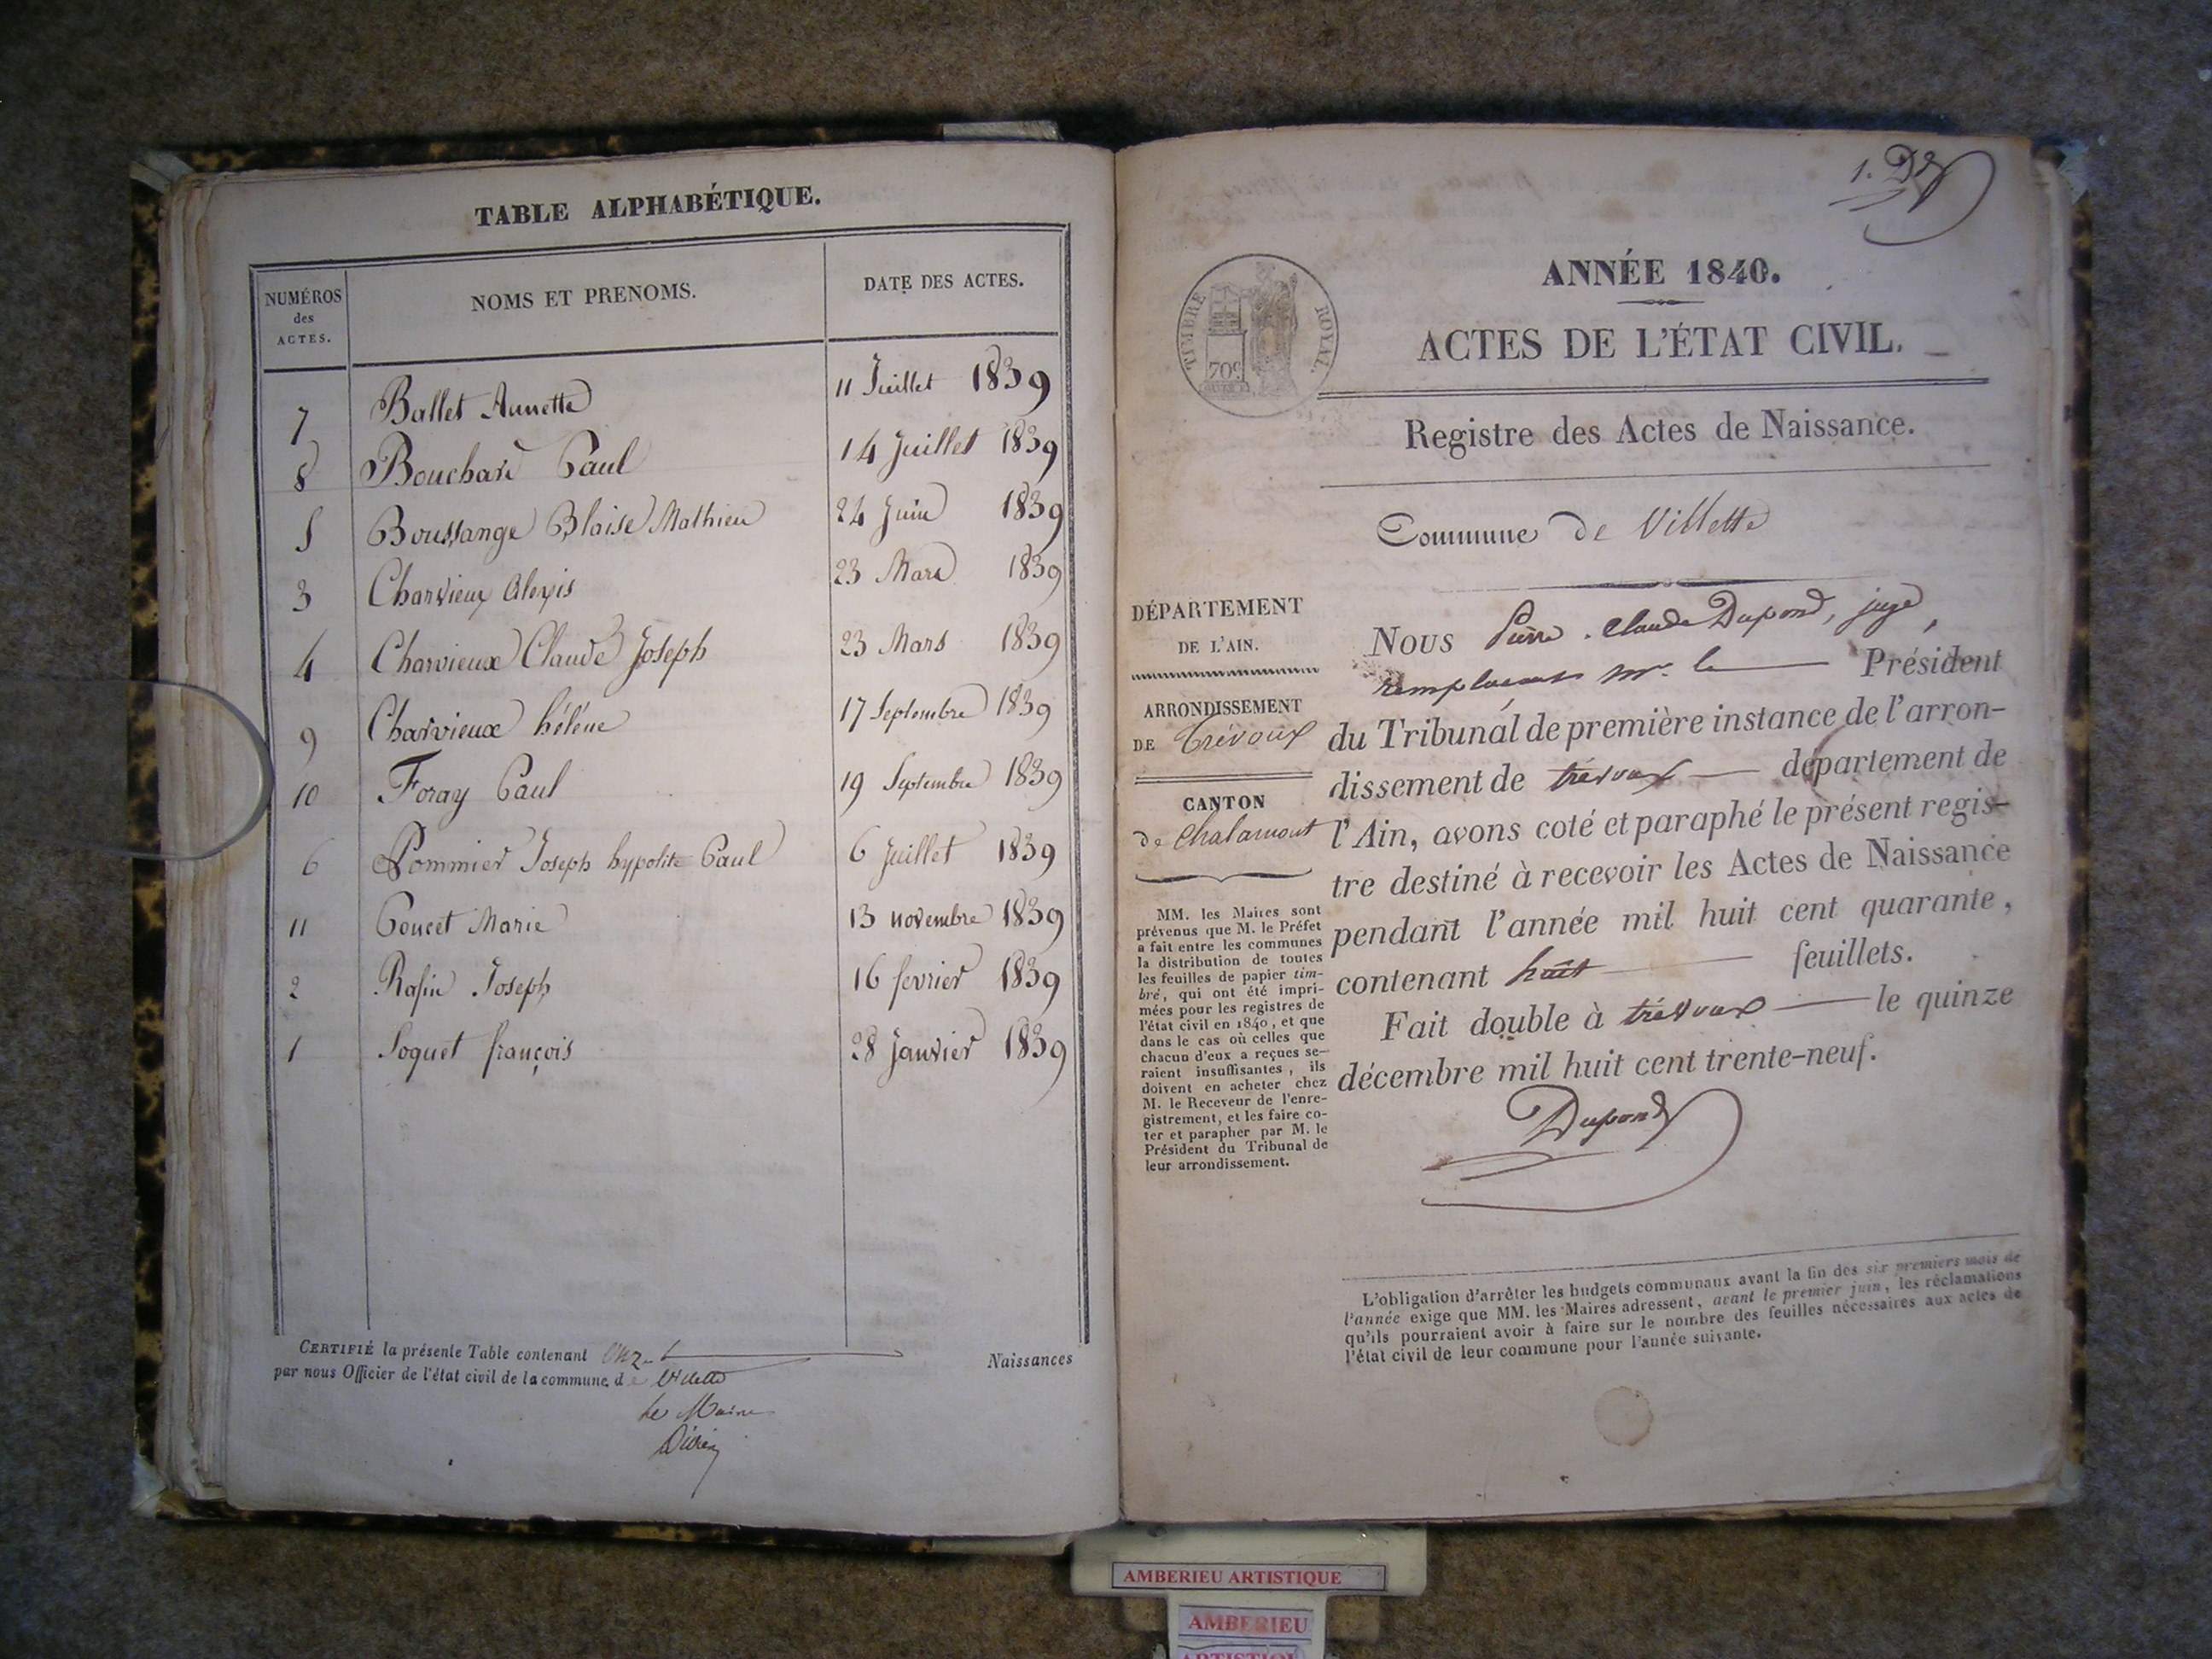 TABLE ALPHABÉTIQUE.
NUMÉROS des ACTES. NOMS ET PRENOMS. DATE DES ACTES.
7 Ballet Annette 11 Juillet 1839
8 Bouchard Paul 14 Juillet 1839
5 Boussange Blaise Mathieu 24 Juin 1839
3 Charvieux Alexis 23 Mars 1839
4 Charvieux Claude Joseph 23 Mars 1839
9 Charvieux hélène 17 Septembre 1839
10 Foray Paul 19 Septembre 1839
6 Pommier Joseph hypolite Paul 6 Juillet 1839
11 Poncet Marie 13 novembre 1839
2 Rafin Joseph 16 fevrier 1839
1 Soquet françois 28 janvier 1839
CERTIFIÉ la présente Table contenant onze Naissances
par nous Officier de l'état civil de la commune de Villette
Le Maire
1. D
TIMBRE ROYAL
70c
ANNÉE 1840.
ACTES DE L'ÉTAT CIVIL.
Registre des Actes de Naissance.
Commune de Villette
DÉPARTEMENT
DE L'AIN.
ARRONDISSEMENT
DE Trévoux
CANTON
de Chalamont
MM. les Maires sont
prévenus que M. le Préfet
a fait entre les communes
la distribution de toutes
les feuilles de papier tim-
bré, qui ont été impri-
mées pour les registres de
l'état civil en 1840, et que
dans le cas où celles que
chacun d'eux a reçues se-
raient insuffisantes, ils
doivent en acheter chez
M. le Receveur de l'enre-
gistrement, et les faire co-
ter et parapher par M. le
Président du Tribunal de
leur arrondissement.
Nous Pierre Claude Dupond, juge,
remplaçant mr. le Président
du Tribunal de première instance de l'arron-
dissement de trévoux département de
l'Ain, avons coté et paraphé le présent regis-
tre destiné à recevoir les Actes de Naissance
pendant l'année mil huit cent quarante,
contenant huit feuillets.
Fait double à trévoux le quinze
décembre mil huit cent trente-neuf.
Dupond
L'obligation d'arrêter les budgets communaux avant la fin des six premiers mois de
l'année exige que MM. les Maires adressent, avant le premier juin, les réclamations
qu'ils pourraient avoir à faire sur le nombre des feuilles nécessaires aux actes de
l'état civil de leur commune pour l'année suivante.
AMBERIEU ARTISTIQUE
AMBERIEU
ARTISTIQUE